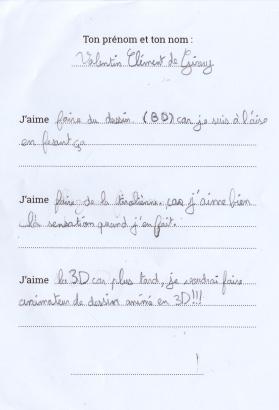 Ton prénom et ton nom :
Valentin Clément de Givry
J'aime faire du dessin (BD) car je suis à l'aise
en fesant ça
J'aime faire de la tirolienne. car j'aime bien
la sensation quand j'en fait.
J'aime la 3D car plus tard, je voudrai faire
animateur de dessin animé en 3D!!!
!